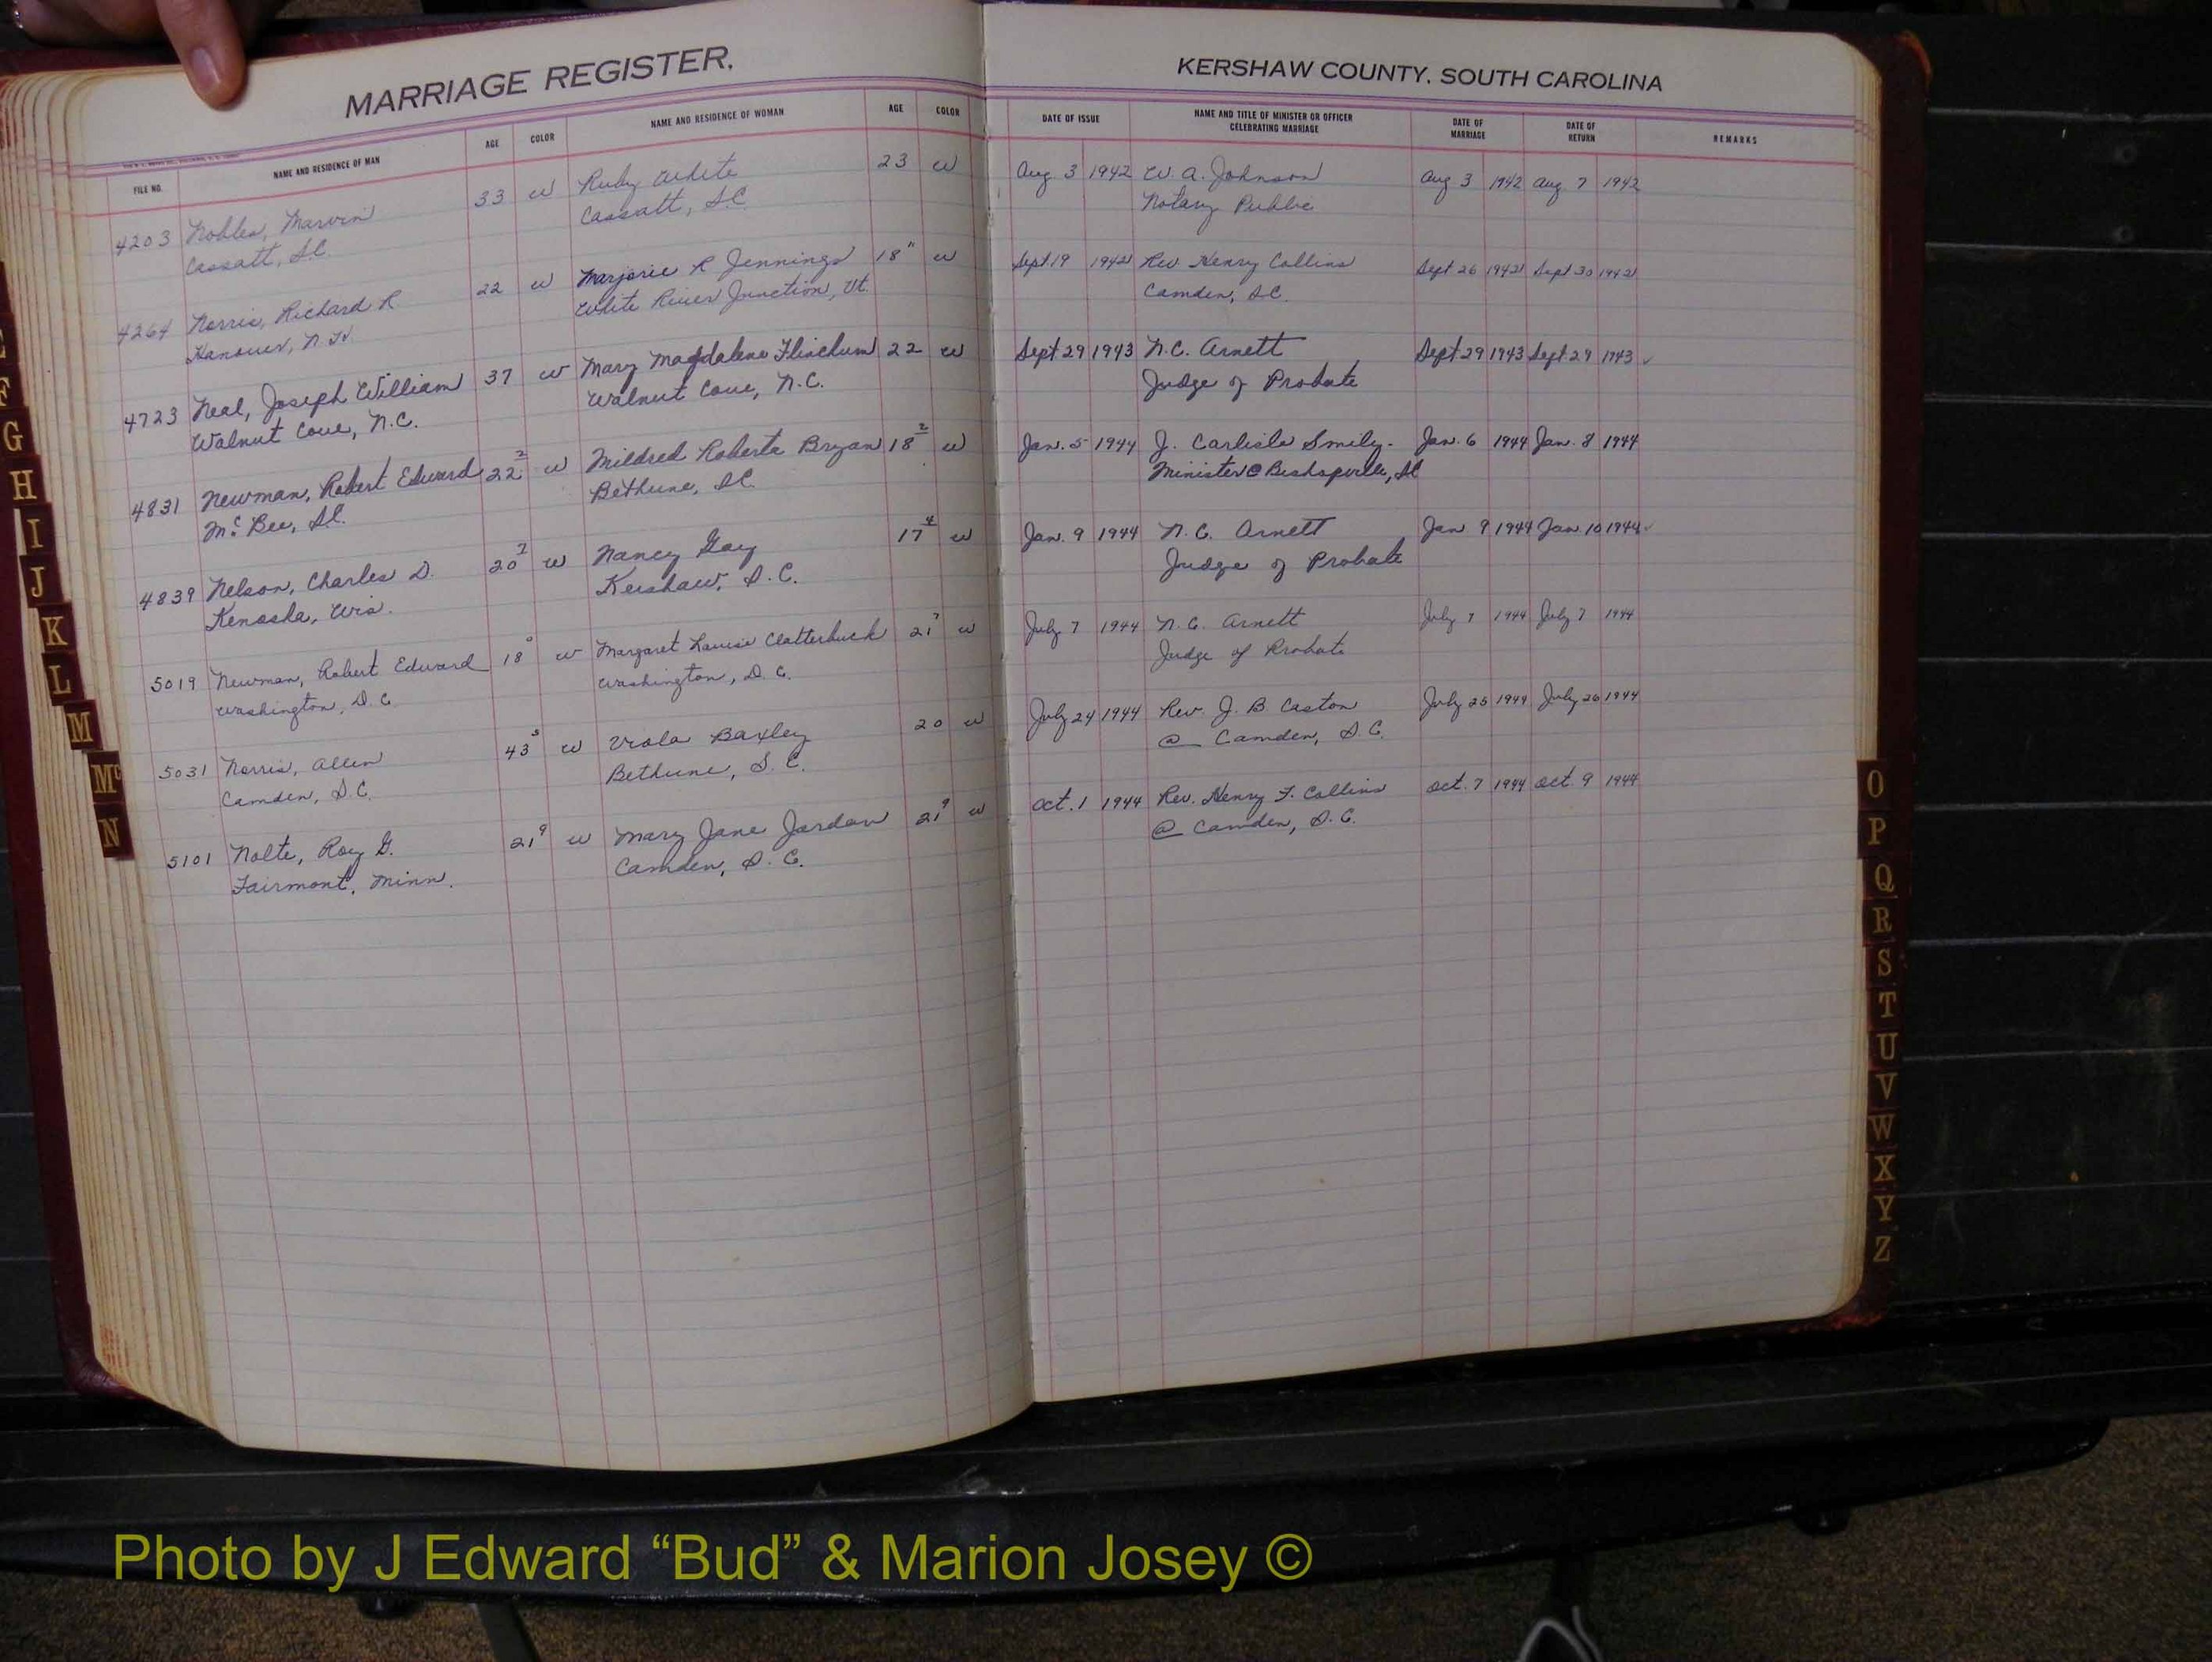 MARRIAGE REGISTER.
FILE NO. NAME AND RESIDENCE OF MAN AGE COLOR NAME AND RESIDENCE OF WOMAN AGE COLOR
4203 Nobles, Marvin 33 W Ruby White 23 W
Cassatt, S.C. Cassatt, S.C.
4264 Norris, Richard R 22 W Marjorie R Jennings 18 11 W
Hanover, N.H. White River Junction, Vt.
4723 Neal, Joseph William 37 W Mary Magdalene Flinchum 22 W
Walnut Cove, N.C. Walnut Cove, N.C.
4831 Newman, Robert Edward 22 2 W Mildred Roberta Bryan 18 2 W
McBee, S.C. Bethune, S.C.
4839 Nelson, Charles D. 20 7 W Nancy Gay 17 4 W
Kenosha, Wis. Kershaw, S.C.
5019 Newman, Robert Edward 18 0 W Margaret Louise Clatterbuck 21 7 W
Washington, D.C. Washington, D.C.
5031 Norris, Allen 43 5 W Viola Baxley 20 W
Camden, S.C. Bethune, S.C.
5101 Nolte, Roy G. 21 9 W Mary Jane Jordan 21 9 W
Fairmont, Minn. Camden, S.C.
KERSHAW COUNTY. SOUTH CAROLINA
DATE OF ISSUE NAME AND TITLE OF MINISTER OR OFFICER CELEBRATING MARRIAGE DATE OF MARRIAGE DATE OF RETURN REMARKS
Aug. 3 1942 W. A. Johnson Aug 3 1942 Aug 7 1942
Notary Public
Sept. 19 1942 Rev Henry Collins Sept 26 1942 Sept 30 1942
Camden, S.C.
Sept 29 1943 N.C. Arnett Sept 29 1943 Sept 29 1943 ✓
Judge of Probate
Jan. 5 1944 J. Carlisle Smily - Jan. 6 1944 Jan. 8 1944
Minister @ Bishopville, SC
Jan. 9 1944 N.C. Arnett Jan 9 1944 Jan 10 1944 ✓
Judge of Probate
July 7 1944 N.C. Arnett July 7 1944 July 7 1944
Judge of Probate
July 24 1944 Rev. J. B. Caston July 25 1944 July 26 1944
@ Camden, S.C.
Oct. 1 1944 Rev. Henry F. Collins Oct. 7 1944 Oct. 9 1944
@ Camden, S.C.
F
G
H
I
J
K
L
M
Mc
N
O
P
Q
R
S
T
U
V
W
X
Y
Z
Photo by J Edward “Bud” & Marion Josey ©